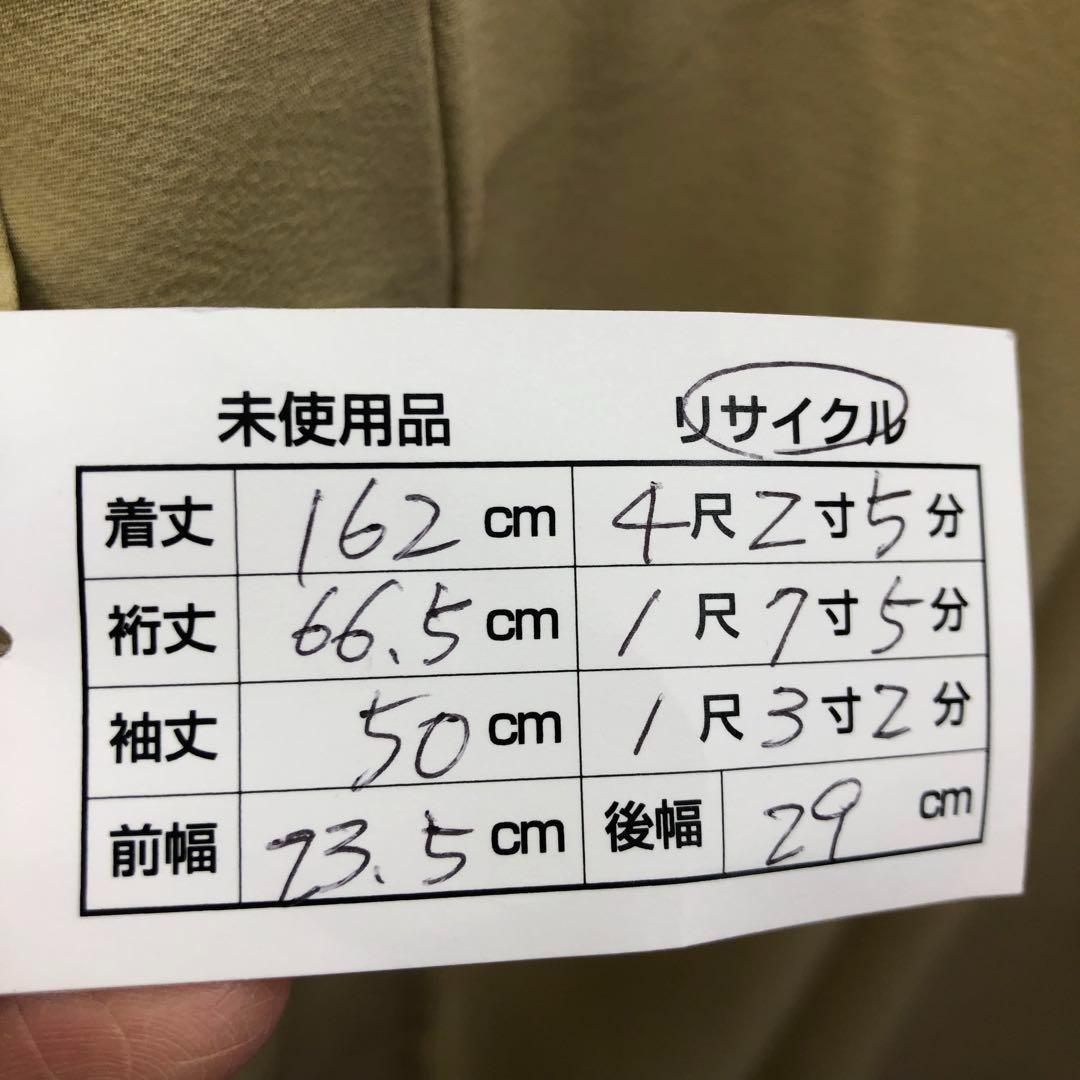 未使用品 リサイクル
着丈 162 cm 4尺2寸5分
裄丈 66.5 cm 1尺7寸5分
袖丈 50 cm 1尺3寸2分
前幅 23.5 cm 後幅 29 cm